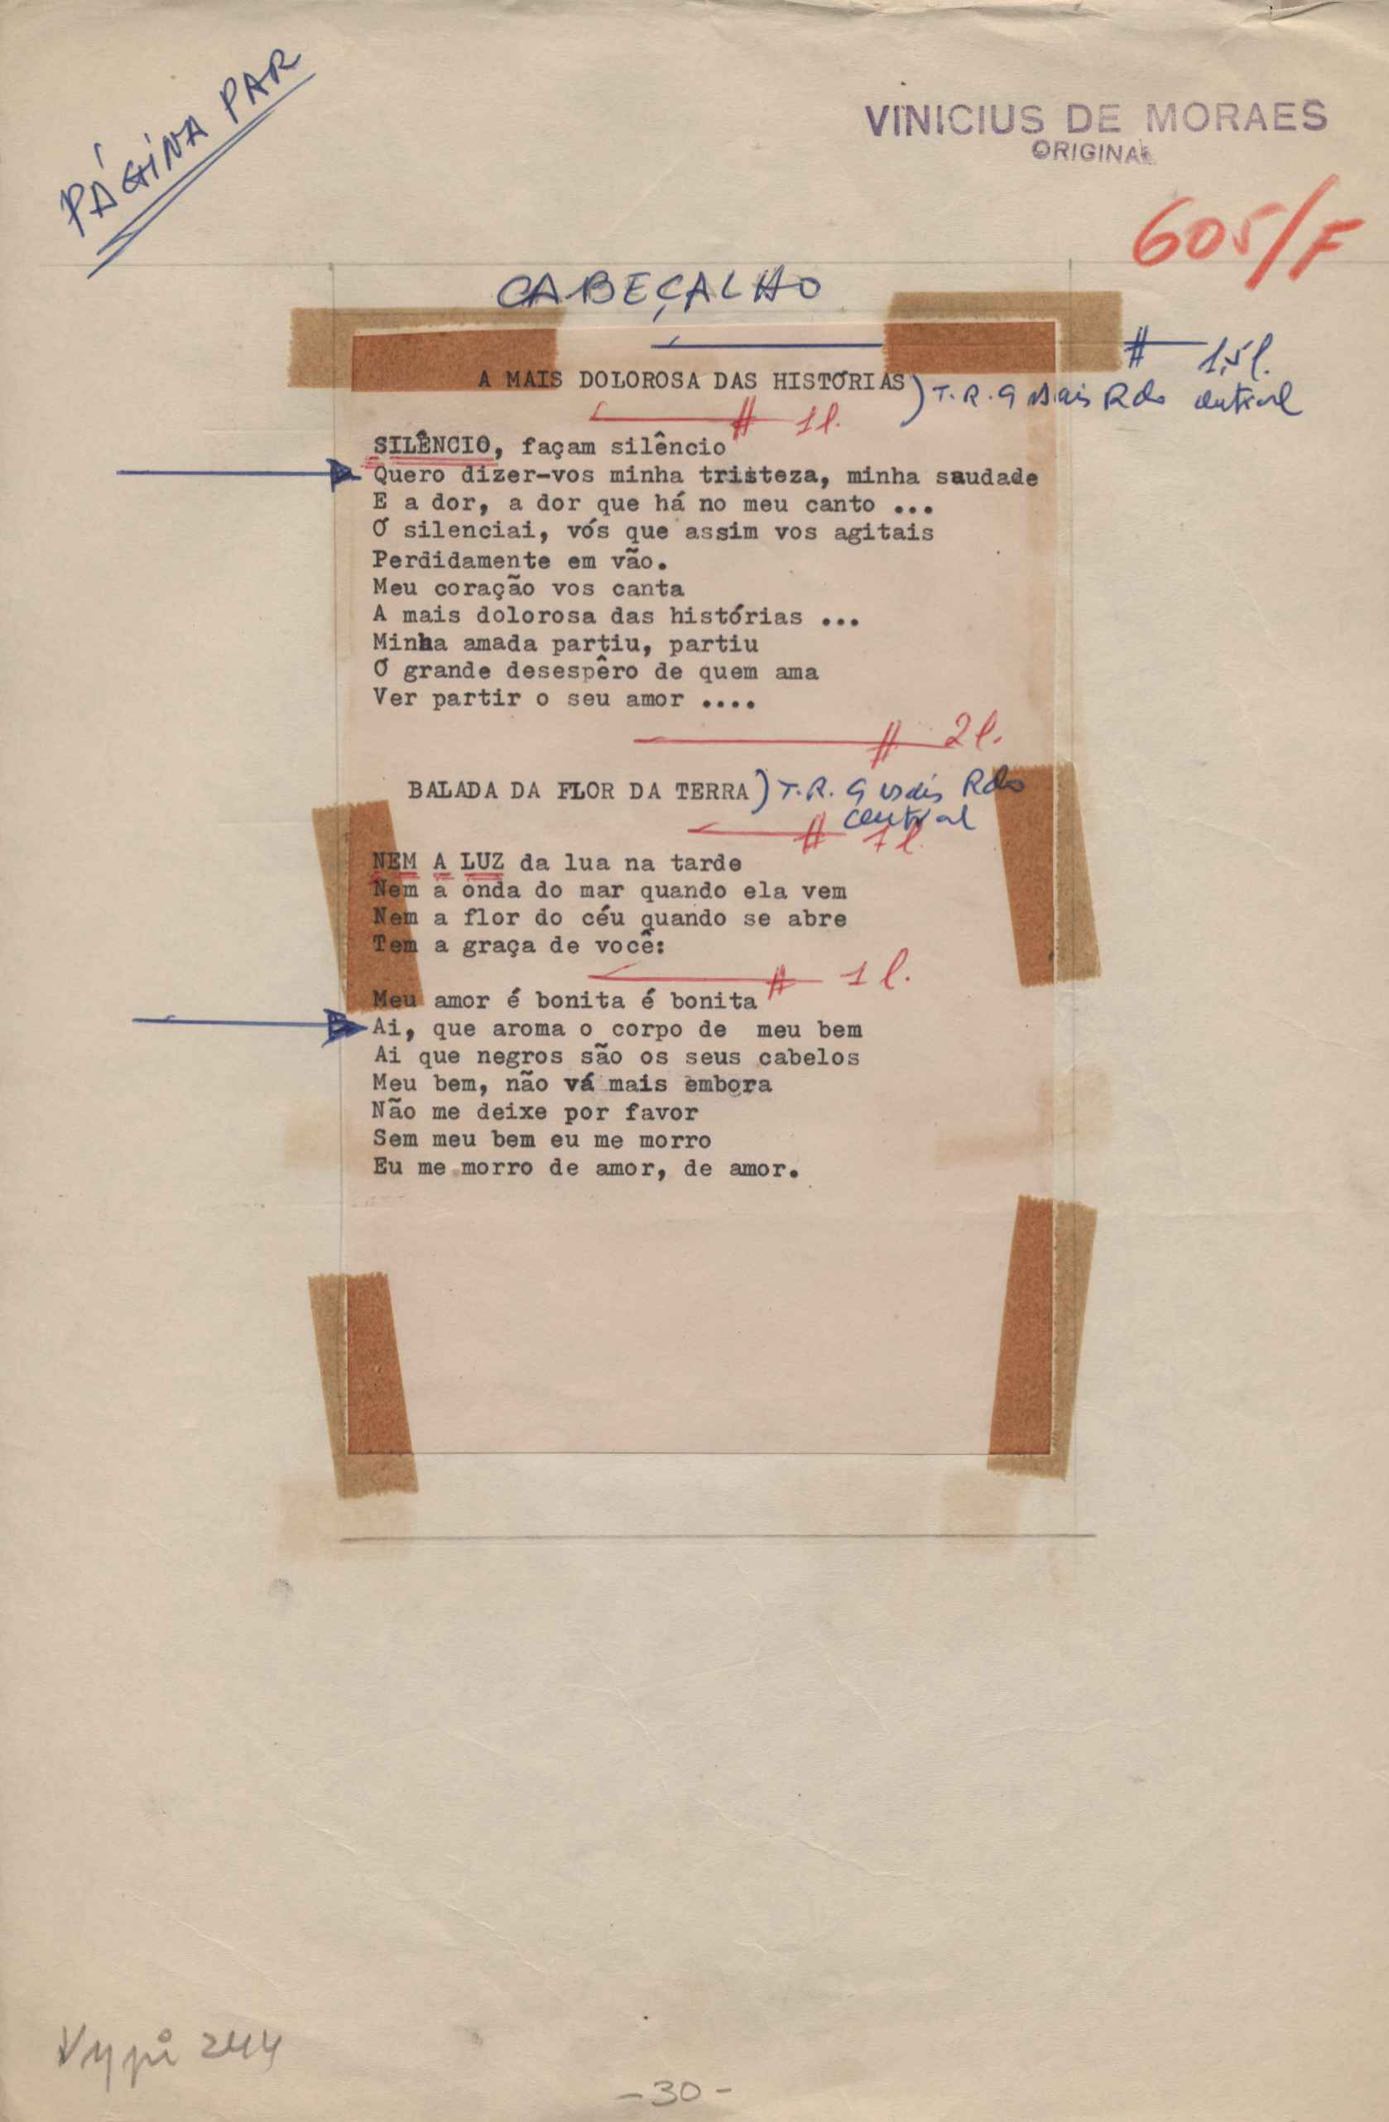 PÁGINA PAR
VINICIUS DE MORAES
ORIGINAL
605/F
CABEÇALHO
# 1,5 l.
A MAIS DOLOROSA DAS HISTÓRIAS) T. R. G Rdo central
# 1 l.
SILÊNCIO, façam silêncio
Quero dizer-vos minha tristeza, minha saudade
E a dor, a dor que há no meu canto ...
Ó silenciai, vós que assim vos agitais
Perdidamente em vão.
Meu coração vos canta
A mais dolorosa das histórias ...
Minha amada partiu, partiu
Ó grande desespêro de quem ama
Ver partir o seu amor ....
# 2 l.
BALADA DA FLOR DA TERRA) T. R. G Rdo
central
# 1 l.
NEM A LUZ da lua na tarde
Nem a onda do mar quando ela vem
Nem a flor do céu quando se abre
Tem a graça de você:
# 1 l.
Meu amor é bonita é bonita
Ai, que aroma o corpo de meu bem
Ai que negros são os seus cabelos
Meu bem, não vá mais embora
Não me deixe por favor
Sem meu bem eu me morro
Eu me morro de amor, de amor.
244
-30-